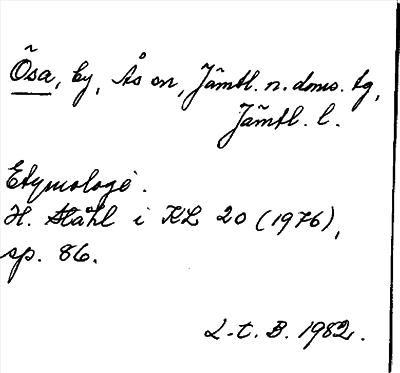 Ösa, by, Ås sn, Jämtl. n. doms. tg,
Jämtl. l.
Etymologi.
H. Ståhl i KL 20 (1976),
sp. 86.
L-t. B. 1982.